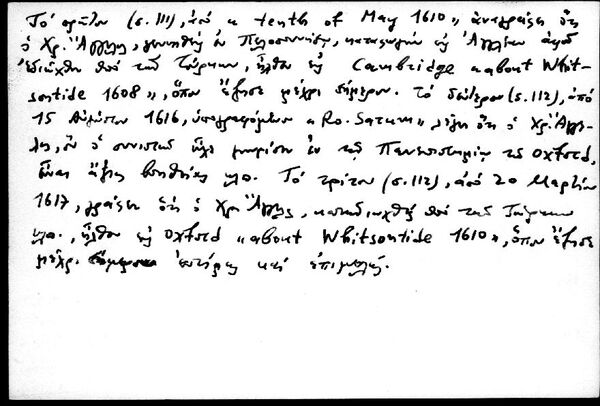 Τό πρῶτον (σ. 111), ἀπό « tenth of May 1610 », ἀναγράφει ὅτι
ὁ Χρ. Ἄγγελος, γεννηθείς ἐν Πελοποννήσῳ, καταφυγών εἰς Ἀγγλίαν ἀφοῦ
ἐδιώχθη ὑπό τῶν Τούρκων, ἦλθεν εἰς Cambridge « about Whit-
sontide 1608 », ὅπου ἔζησε μέχρι σήμερον. Τό δεύτερον (σ. 112), ἀπό
15 Αὐγούστου 1616, ὑπογραφόμενον « Ro. Sarum » λέγει ὅτι ὁ Χρ. Ἄγγε-
λος, ὃν ὁ συνιστῶν εἶχε γνωρίσει ἐν τῷ Πανεπιστημίῳ τῆς Oxford,
εἶναι ἄξιος βοηθείας κλπ. Τό τρίτον (σ. 112), ἀπό 20 Μαρτίου
1617, γράφει ὅτι ὁ Χρ. Ἄγγελος, καταδιωχθείς ὑπό τῶν Τούρκων
κλπ., ἦλθεν εἰς Oxford « about Whitsontide 1610 », ὅπου ἔζησε
μέχρι σήμερον ἐντίμως καί ἐπιμελῶς.